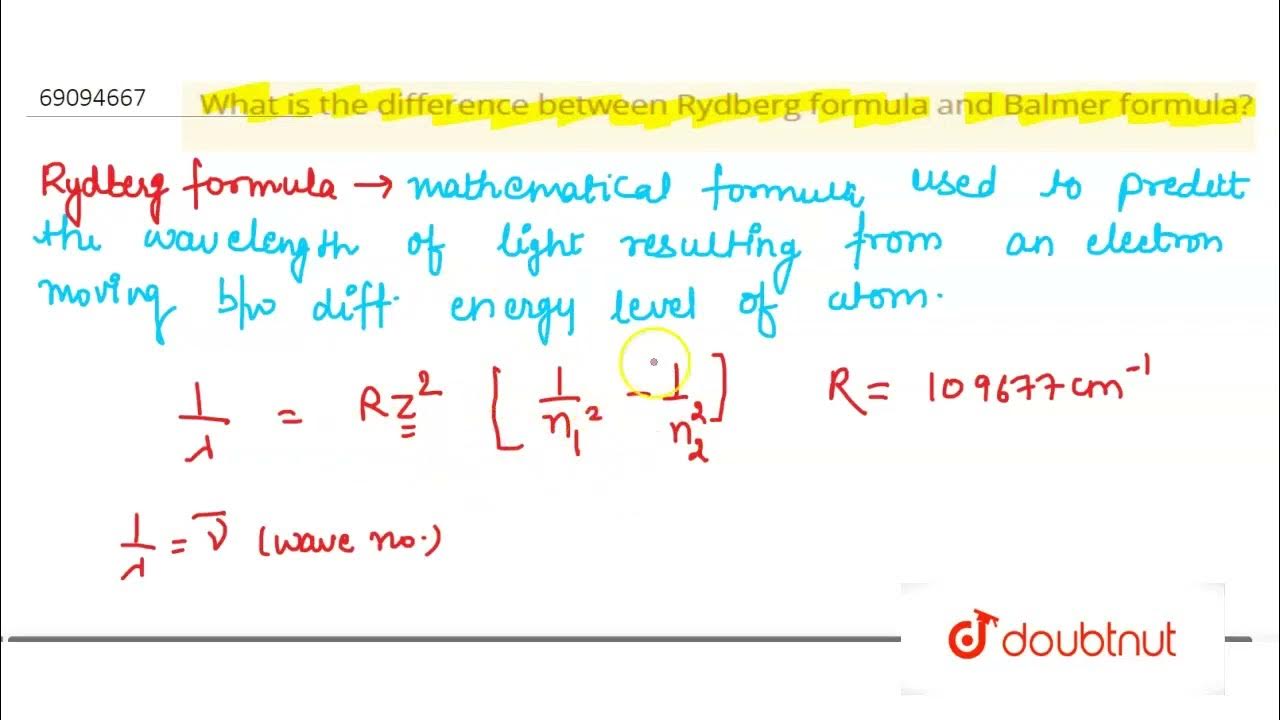 69094667
What is the difference between Rydberg formula and Balmer formula?
Rydberg formula → mathematical formula used to predict
the wavelength of light resulting from an electron
moving b/w diff. energy level of atom.
1/λ = RZ² [1/n₁² - 1/n₂²] R = 109677 cm⁻¹
1/λ = ν̅ (wave no.)
doubtnut